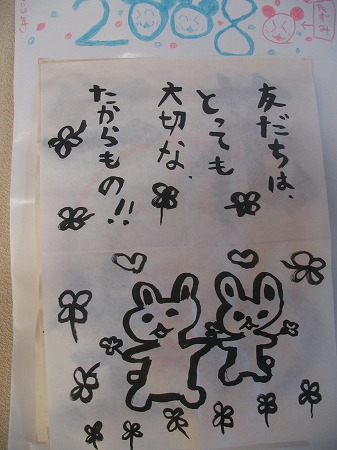 2008
友だちは、
とっても
大切な、
たからもの!!